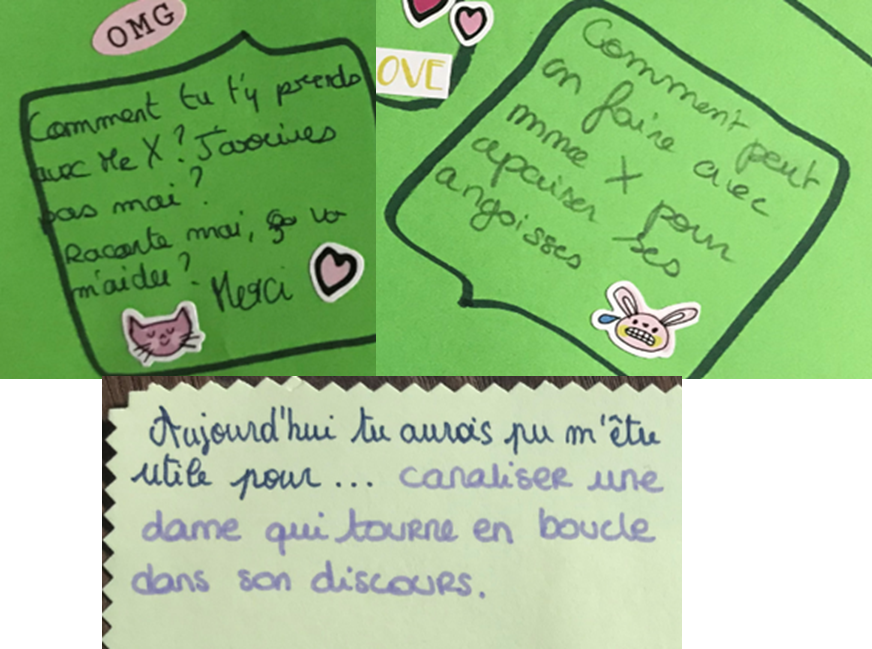 OMG
Comment tu t'y prends
avec Me X? J'arrives
pas moi?
Raconte moi, ça va
m'aider?
Merci
OVE
Comment peut
on faire avec
mme X pour
apaiser ses
angoisses
Aujourd'hui tu aurais pu m'être
utile pour... canaliser une
dame qui tourne en boucle
dans son discours.